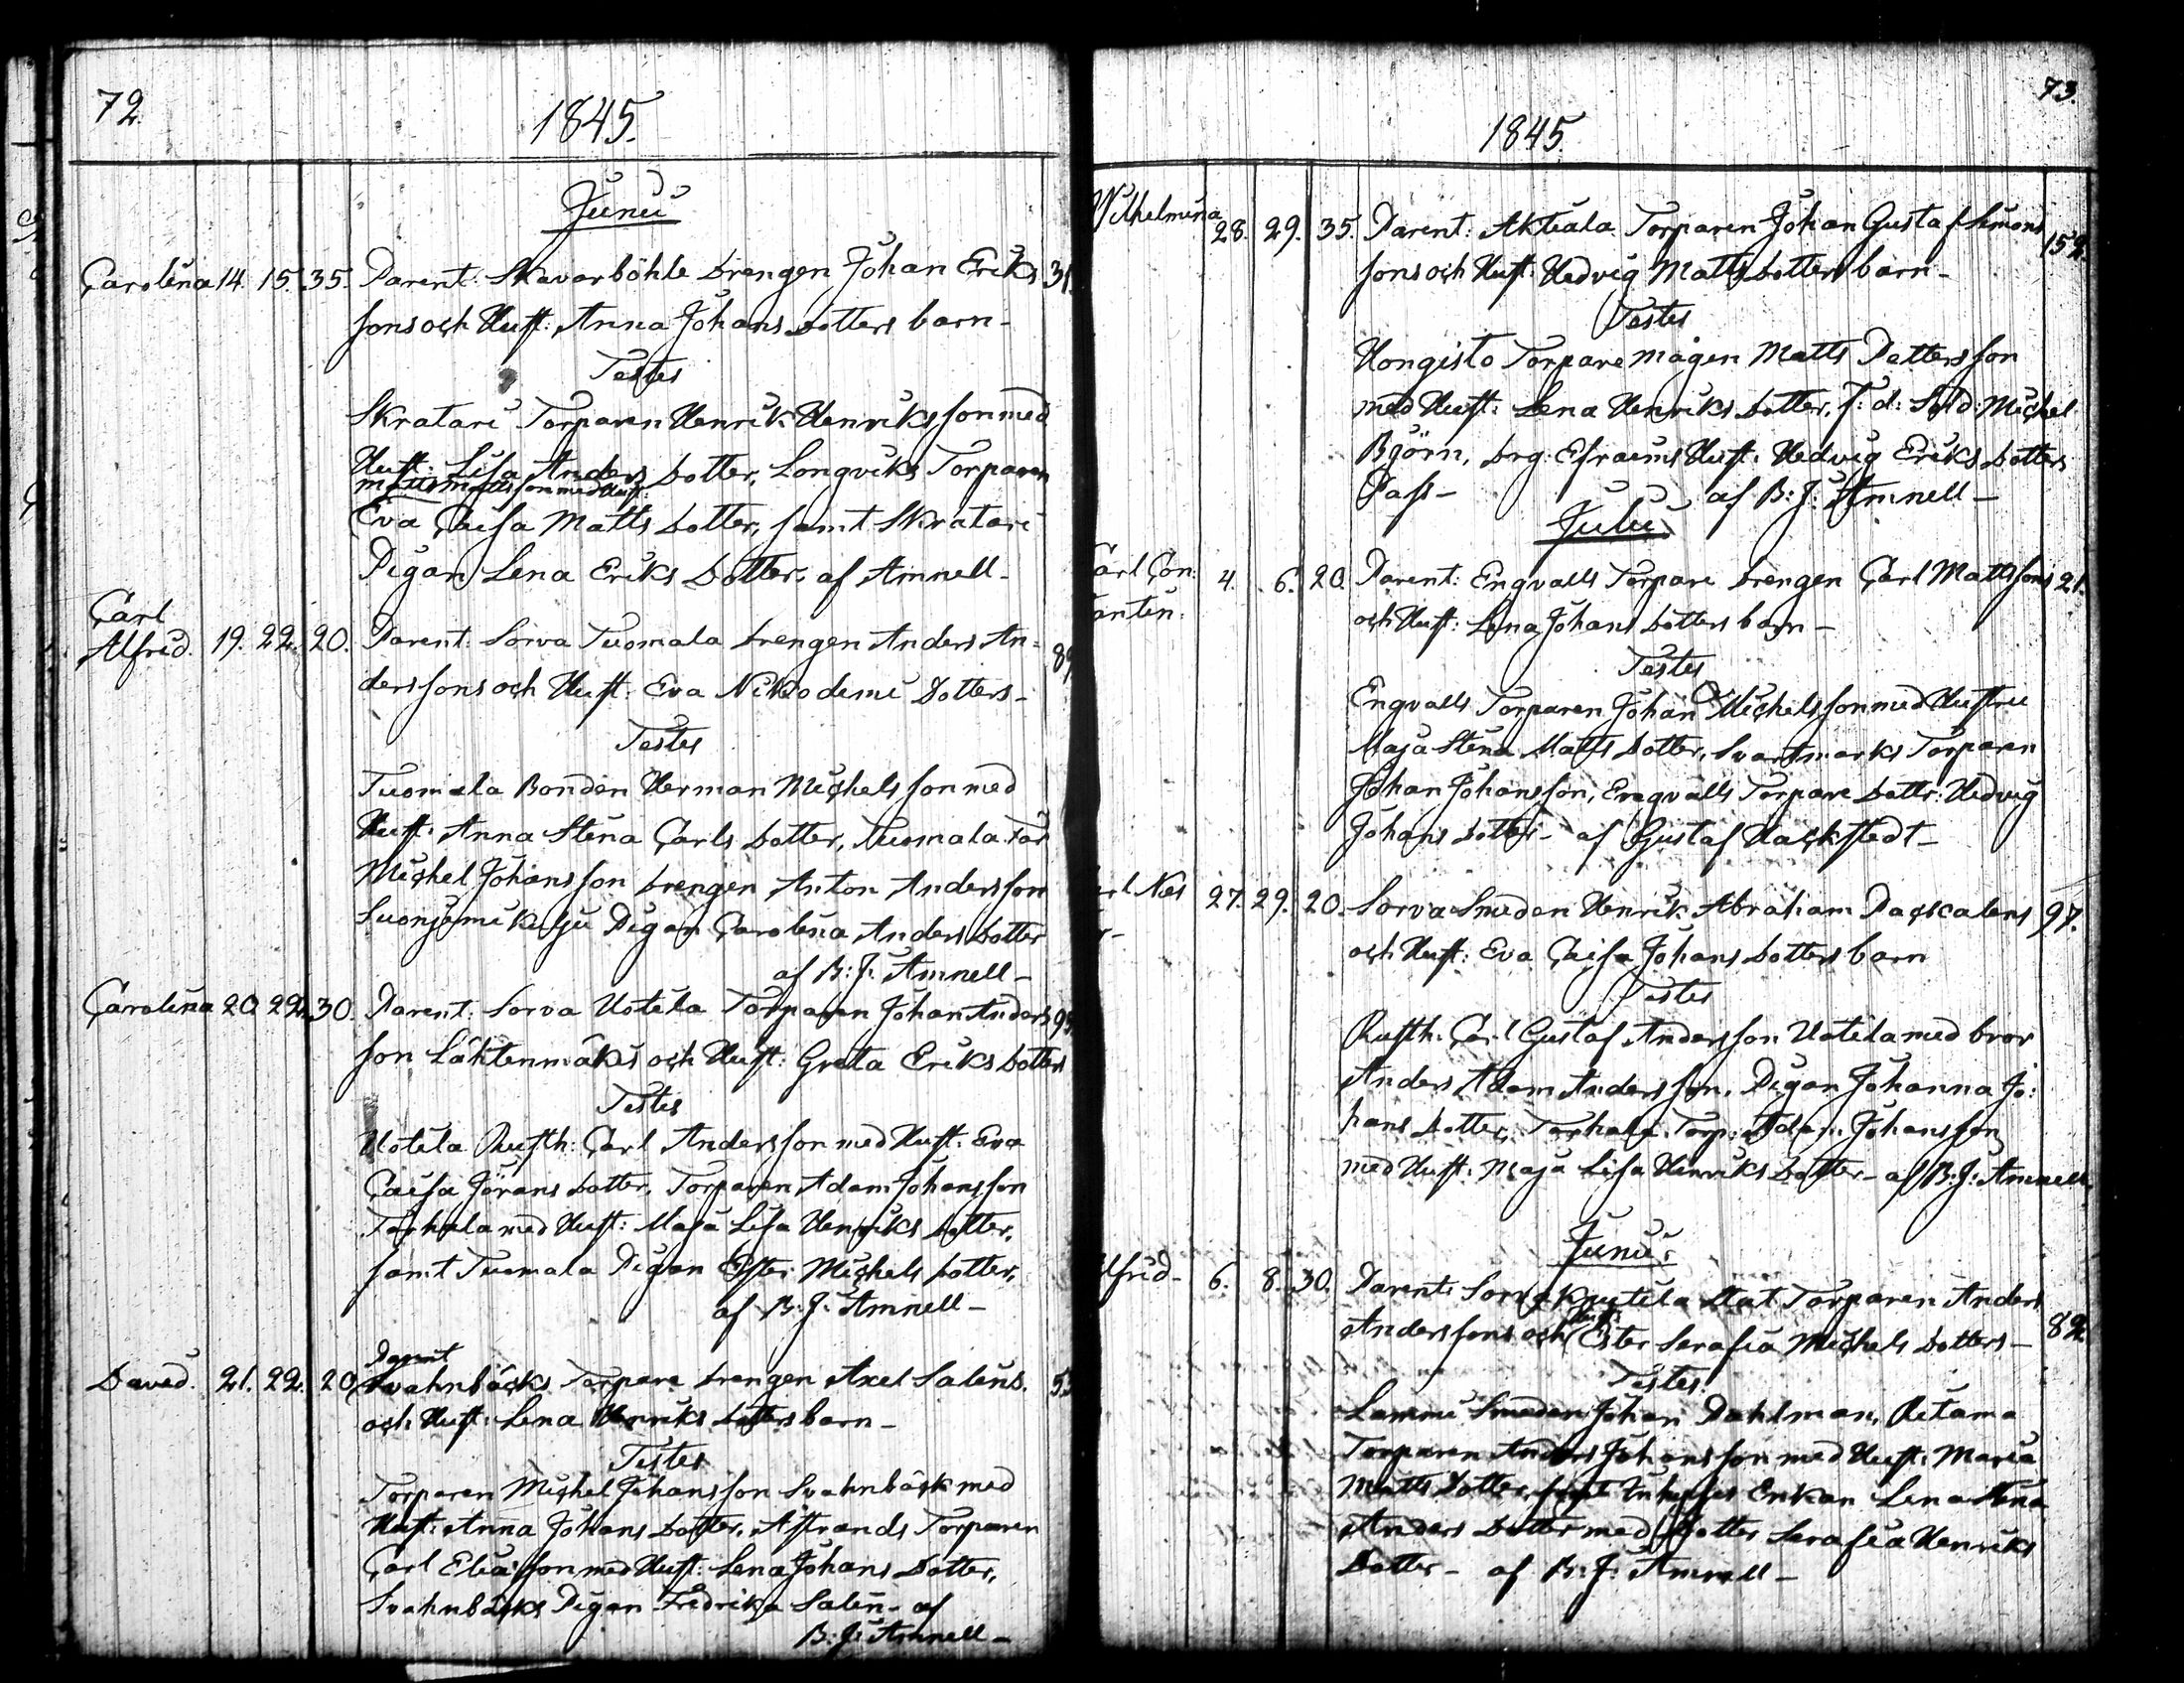 72.
1845.
Junii
Carolina 14. 15. 35. Parent: Skavarböhle drengen Johan Eriks 31.
sons och Hust: Anna Johans dotters barn-
Testes
Skratari Torparen Henrik Henriksson med
Hust: Lisa Anders dotter, Longviks Torparen
Matts Mattsson med Hust:
Eva Caisa Matts dotter, samt Skratari
Pigan Lena Eriks dotter, af Amnell-
Carl
Alfrid. 19. 22. 20. Parent: Sorva Tuomala drengen Anders An=
derssons och Hust: Eva Nikodemi Dotters-
Testes
Tuomala Bonden Herman Michelsson med
Hust: Anna Stina Carls dotter, Tuomala
Michel Johansson drengen Anton Andersson
Pigan Carolina Anders dotter
af B: J: Amnell-
Carolina 20. 22. 30. Parent: Sorva Uotila Torparen Johan Anders
son Lähtenmäkis och Hust: Greta Eriks dotters
Testes
Uotila Rusth: Carl Andersson med Hust: Eva
Caisa Jörans dotter, Torparen Adam Johansson
Torhala med Hust: Maja Lisa Henriks dotter,
samt Tuomala Pigan Ester Michels dotter,
af B: J: Amnell-
Parent
David. 21. 22. 20. Svahnbäcks Torpare drengen Axel Salens.
och Hust: Lena Henriks dotters barn-
Testes
Torparen Michel Johansson Svahnbäck med
Hust: Anna Johans dotter, Åstrands Torparen
Carl Eliasson med Hust: Lena Johans Dotter,
Svahnbäcks Pigan Fredrika Salen- af
B: J: Amnell-
73.
1845.
Wilhelmina 28. 29. 35. Parent: Akteala Torparen Johan Gustaf Simons 152.
sons och Hust: Hedvig Matts dotters barn-
Testes
Hongisto Torpare mågen Matts Pettersson
med Hust: Lena Henriks dotter, f: d: Sold: Michel
Björn, drg: Efraims Hust: Hedvig Eriks dotter
Pass- af B: J: Amnell-
Julii
Carl Con: 4. 6. 20. Parent: Engvalls Torpare drengen Carl Mattssons 21.
och Hust: Lena Johans dotters barn-
Testes
Engvalls Torparen Johan Michelsson med Hustru
Maja Stina Matts dotter, Svartmarks Torparen
Johan Johansson, Engvalls Torpare dottr: Hedvig
Johans dotter- af Gustaf Hackstedt-
27. 29. 20. Sorva Smeden Henrik Abraham Packalens 97.
och Hust: Eva Caisa Johans dotters barn
Testes
Rusth: Carl Gustaf Andersson Uotila med bror
Anders Adam Andersson, Pigan Johanna Jo:
hans dotter, Torhala Torp: Adam Johansson
med Hust: Maja Lisa Henriks dotter- af B: J: Amnell
Junii:
Alfrid- 6. 8. 30. Parent: Sorva Knutila Stat Torparen Anders
Hust:
Anderssons och Ester Serafia Michels dotters- 82.
Testes
Lammi Smeden Johan Dahlman, Ritama
Torparen Anders Johansson med Hust: Maria
Matts Dotter, samt Inhyses Enkan Lena Stina
Anders dotter med dotter Serafia Henriks
Dotter- af B: J: Amnell-